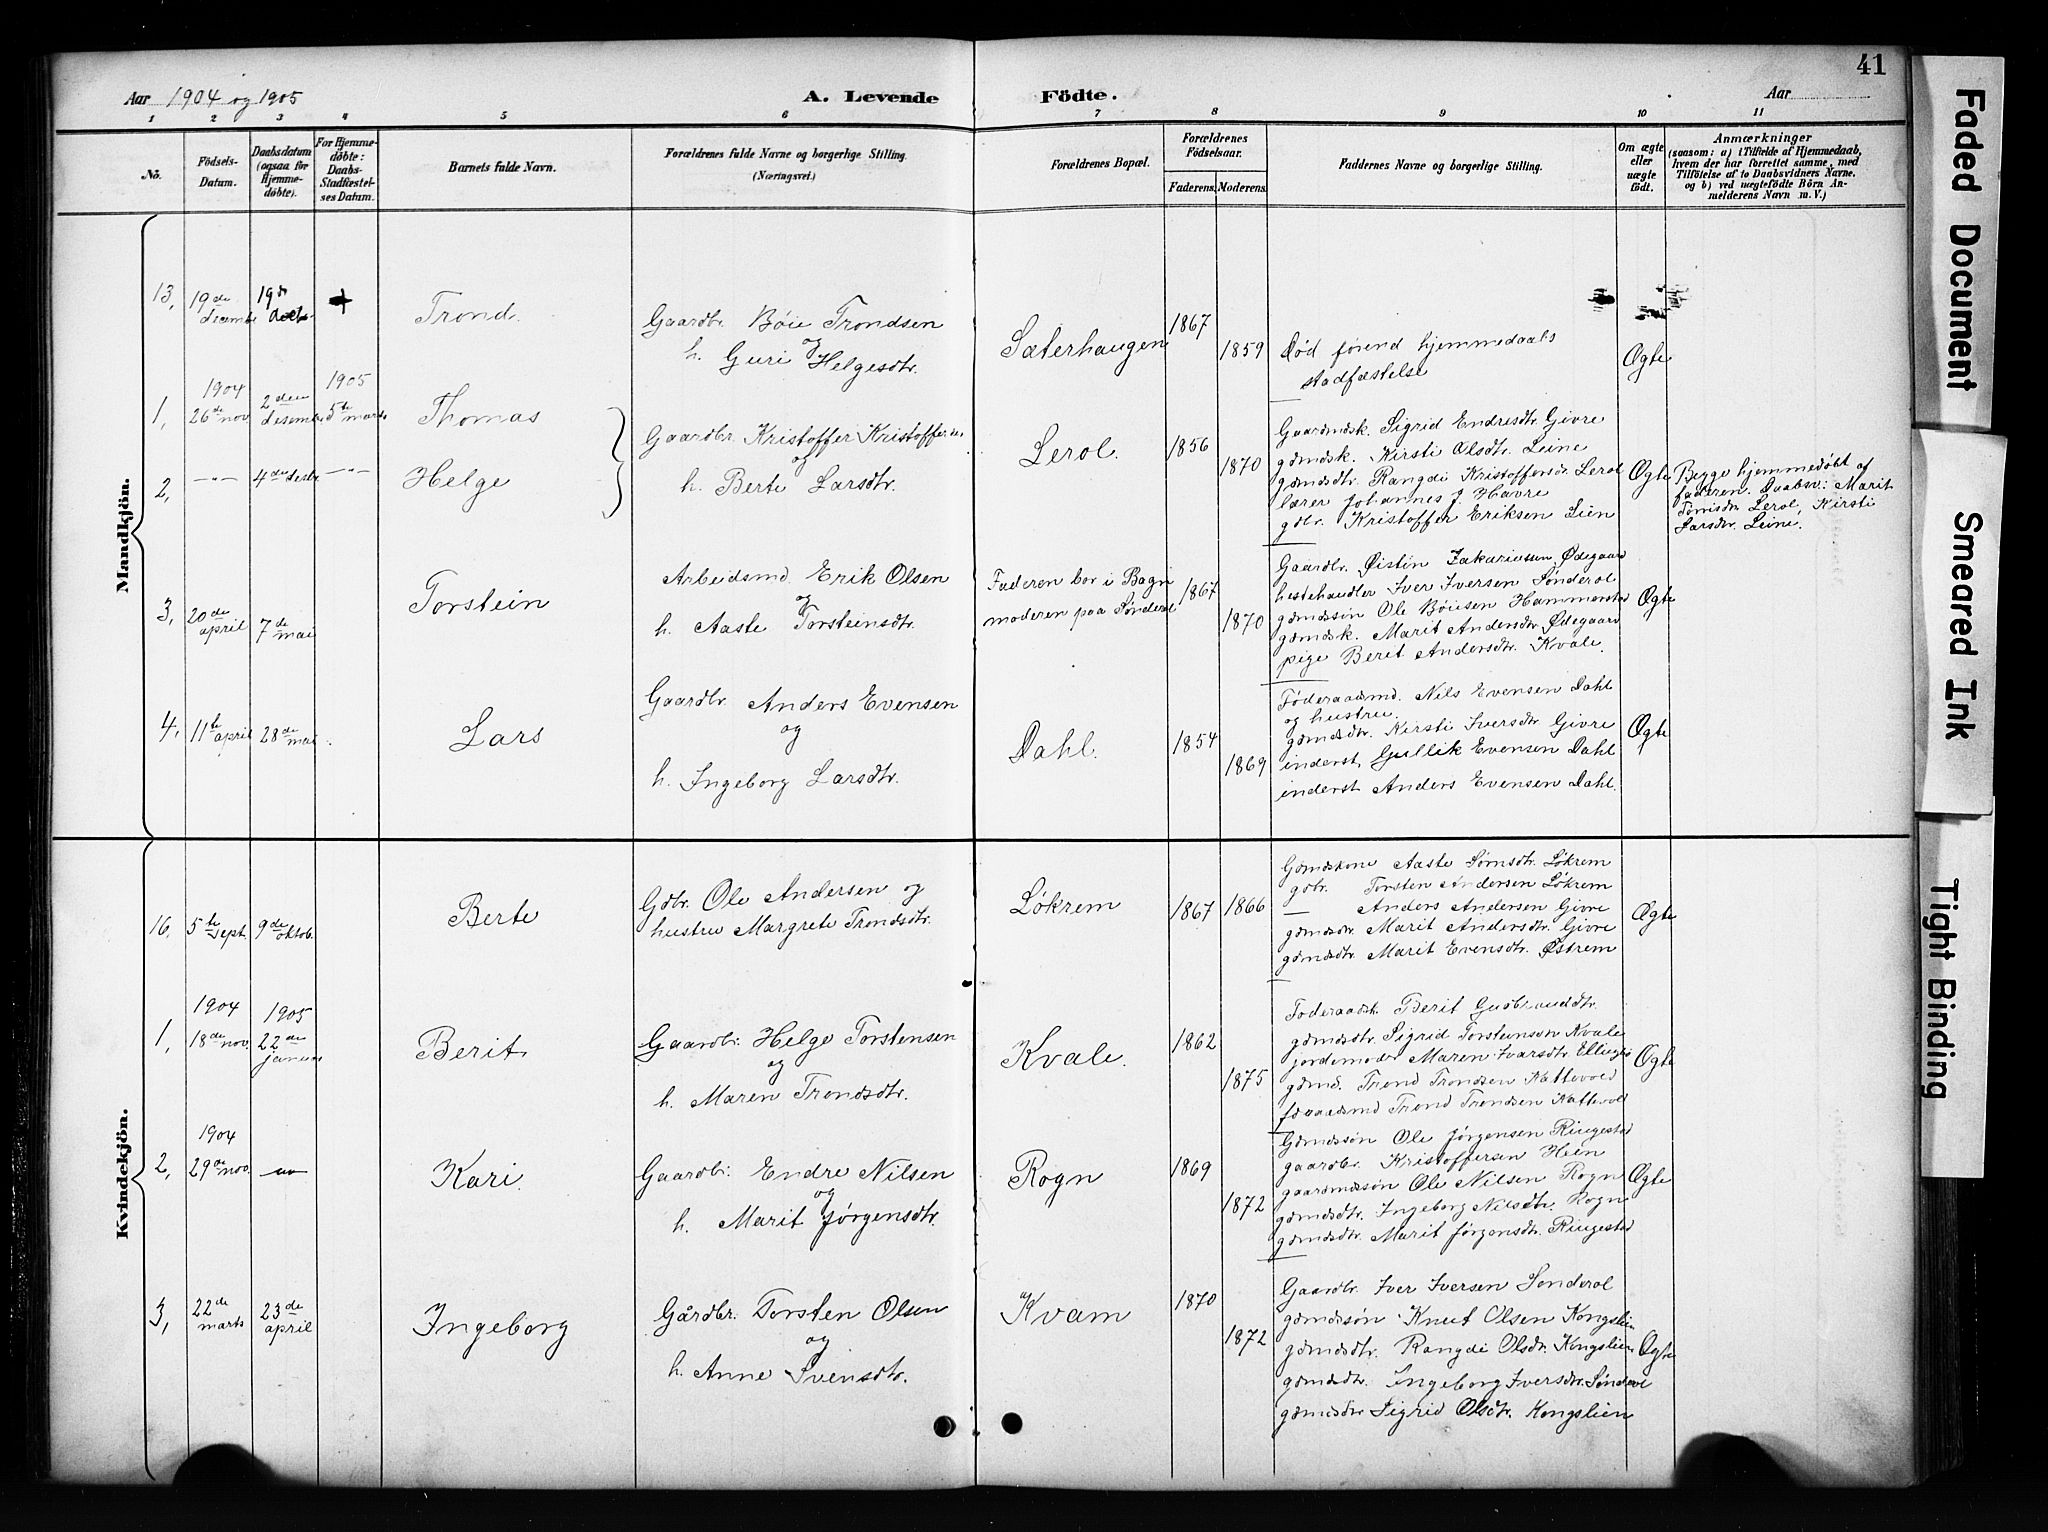 41
Aar 1904 og 1905
A. Levende Födte.
Aar
1 2 3 4 5 6 7 8 9 10 11
No.
Födsels-Datum.
Daabsdatum (ogsaa for Hjemme-döbte).
For Hjemme-döbte: Daabs-Stadfæstel-ses Datum.
Barnets fulde Navn.
Forældrenes fulde Navne og borgerlige Stilling.
(Næringsvei.)
Forældrenes Bopæl.
Forældrenes Födselsaar.
Faderens. Moderens.
Faddernes Navne og borgerlige Stilling.
Om ægte eller uægte födt.
Anmærkninger
(saasom: a) i Tilfælde af Hjemmedaab,
hvem der har forrettet samme, med
Tilföielse af to Daabsvidners Navne,
og b) ved uægtefödte Börn An-
melderens Navn m. V.)
Mandkjön.
13, 19de decembr
Trond.
Gaardbr. Bøie Trondsen
og
h. Guri Helgesdtr.
Sæterhaugen
1867
1859
Død førend hjemmedaabs
stadfæstelse
Ægte
1904
1905
1, 26de nov. 2den desembr 5te marts
Thomas
Gaardbr. Kristoffer Kristoffersen
og
h. Berte Larsdtr.
2, -"- 4de desbr. -"-
Helge
Lerol.
1856
1870
Gaardmdsk. Sigrid Endresdtr. Givre
gdmdsk. Kirsti Olsdtr. Leine
gdmdsdtr. Rangdi Kristoffersdr. Lerol
lærer Johannes J. Havre
gdbr. Kristoffer Eriksen Lien
Ægte
Begge hjemmedøbt af
faderen. Daabsv: Marit
Tømisdr Lerol, Kirsti
Larsdtr. Leine.
3, 20de april 7de mai
Torstein
Arbeidsmd. Erik Olsen
og
h. Aaste Torsteinsdtr.
Faderen bor i Bagn
moderen paa Sønderol
1867
1870
Gaardbr. Øistin Zakariassen Ødegaard
hestehandler Iver Iversen Sønderol
gdmdssøn Ole Bøiesen Hammerstad
gdmdsk. Marit Andersdtr Ødegaard
pige Berit Andersdtr. Kvale.
Ægte
4, 11te april 28de mai
Lars
Gaardbr. Anders Evensen
og
h. Ingeborg Larsdtr.
Dahl.
1854
1869
Føderaadsmd. Nils Evensen Dahl
og hustru.
gdmdsdtr. Kirsti Iversdtr. Givre
inderst, Gullik Evensen Dahl
inderst Anders Evensen Dahl.
Ægte
Kvindekjön.
16. 5te sept. 9de oktob.
Berte
Gdbr. Ole Andersen og
hustru Margrete Trondsdtr.
Løkrem
1867 1866
Gdmdskone Aaste Tømsdtr. Løkrem
gdbr. Torsten Andersen Løkrem
— Anders Andersen Givre
gdmdsdtr. Marit Andersdtr. Givre
gdmdsdtr. Marit Evensdtr. Østrem
Ægte
1904 1905
1, 18de nov. 22de januar
Berit
Gaardbr. Helge Torstensen
og
h. Maren Trondsdtr.
Kvale.
1862
1875
Føderaadsk. Berit Gudbrandsdtr.
gdmdsdtr. Sigrid Torsteinsen Kvale
jordemoder Maren Ivarsdtr.
gdmd. Trond Trondsen Kattevold
Trond Trondsen Kattevold
Ægte
1904
2, 29de nov. -"-
Kari.
Gaardbr. Endre Nilsen
og
h. Marit Jørgensdtr.
Rogn
1869
1872
Gdmdssøn Ole Jørgensen Ringestad
gaardbr. Kristoffersen
gaardmdssøn Ole Nilsen Rogn
gdmdsdtr. Ingeborg Nilsdtr. Rogn
gdmdsdtr. Marit Jørgensdtr. Ringestad
Ægte
3, 22de marts 23de april
Ingeborg
Gårdbr. Torsten Olsen
og
h. Anne Svensdtr.
Kvam
1870
1872
Gaardbr. Iver Iversen Sønderol
gdmdssøn Knut Olsen Kongslien
gdmdsdtr. Rangdi Olsdtr. Kongslien
gdmdsdtr. Ingeborg Iversdtr. Sønderol
gdmdsdtr Sigrid Olsdtr. Kongslien
Ægte
Faded Document
Smeared Ink
Tight Binding